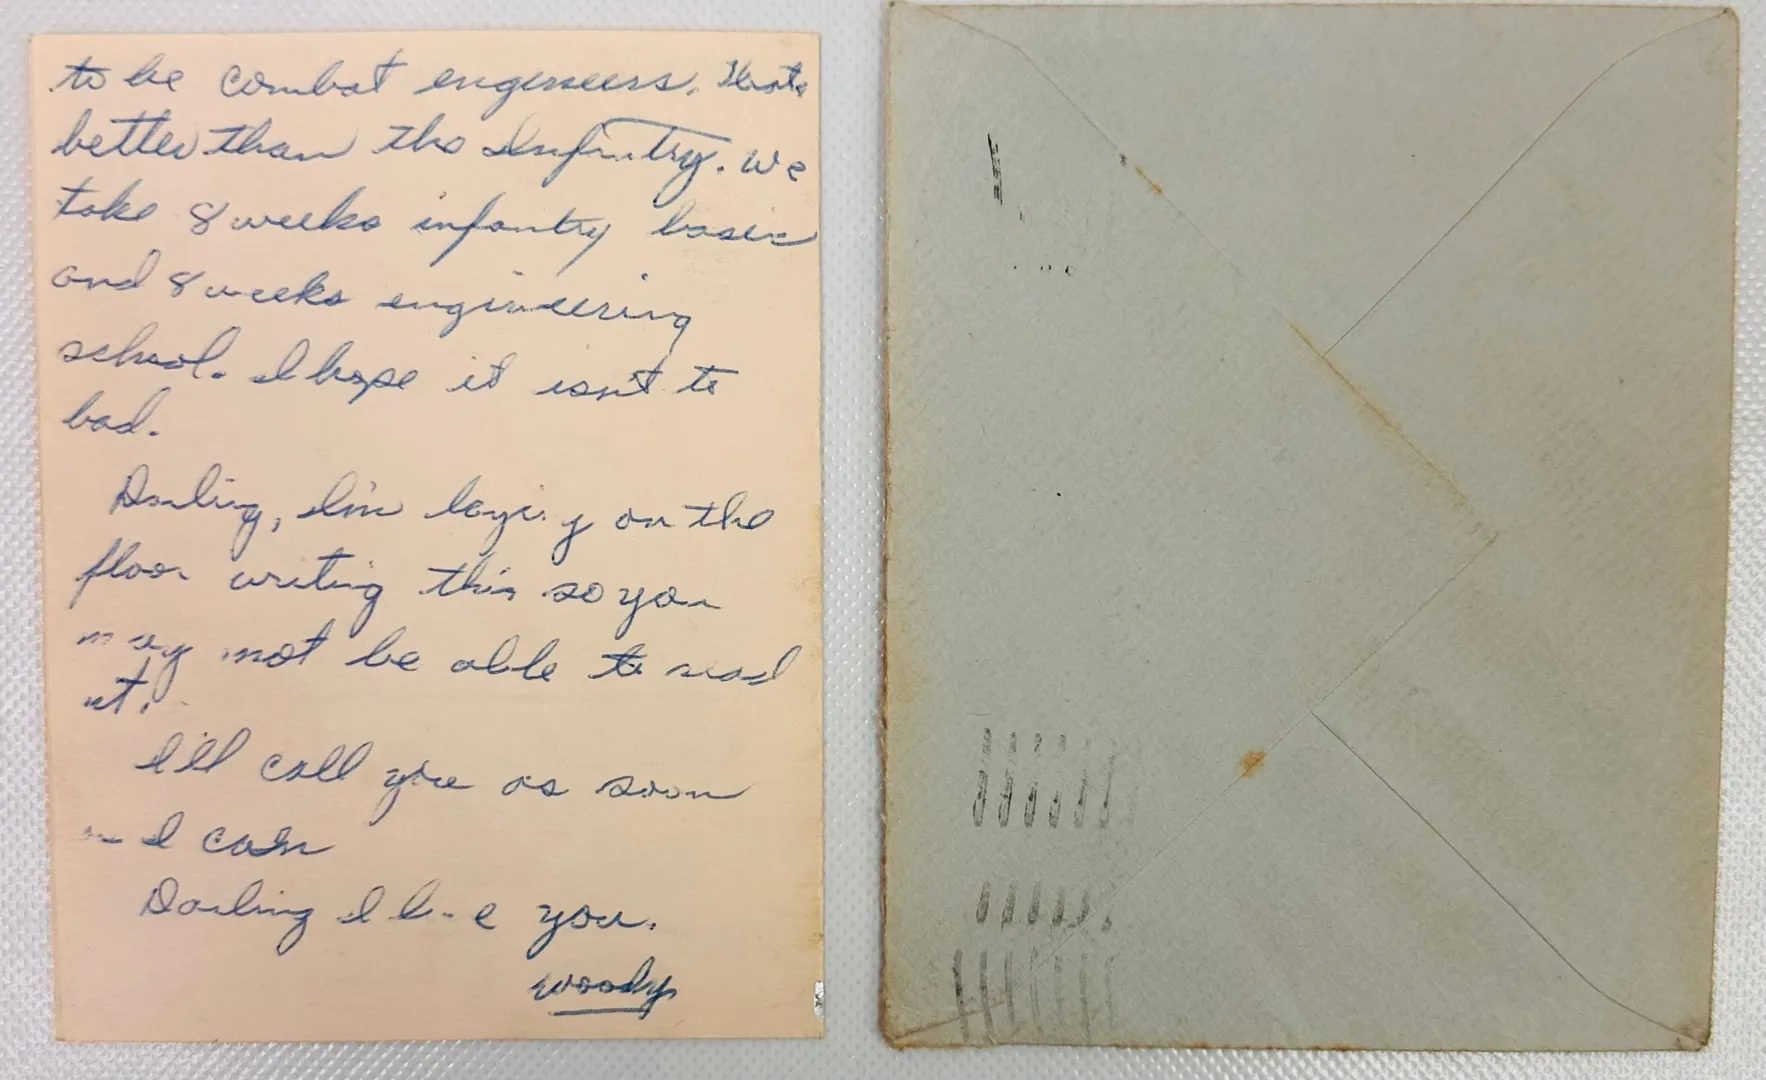 to be combat engineers. Thats
better than the Infintry. We
take 8 weeks infantry basic
and 8 weeks engineering
school. I hope it isn't to
bad.
Darling, I'm laying on the
floor writing this so you
may not be able to read
it.
I'll call you as soon
as I can
Darling I love you.
Woody